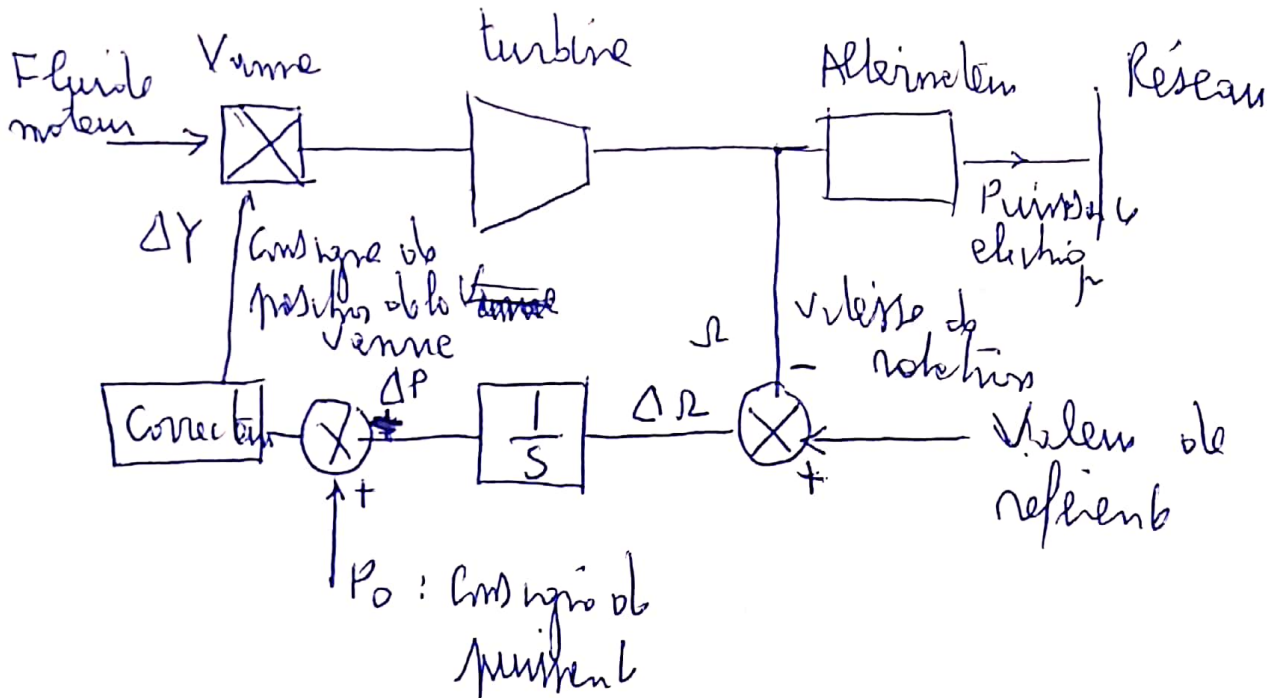 Fluide
moteur
Vanne
turbine
Alternateur
Réseau
Puissance
electriq
ΔY
Consigne de
position de la
Vanne
Ω
vitesse de
rotation
-
Correcteur
ΔP
+
+
1
S
ΔΩ
+
Valeur de
référence
P0 : Consigne de
puissance